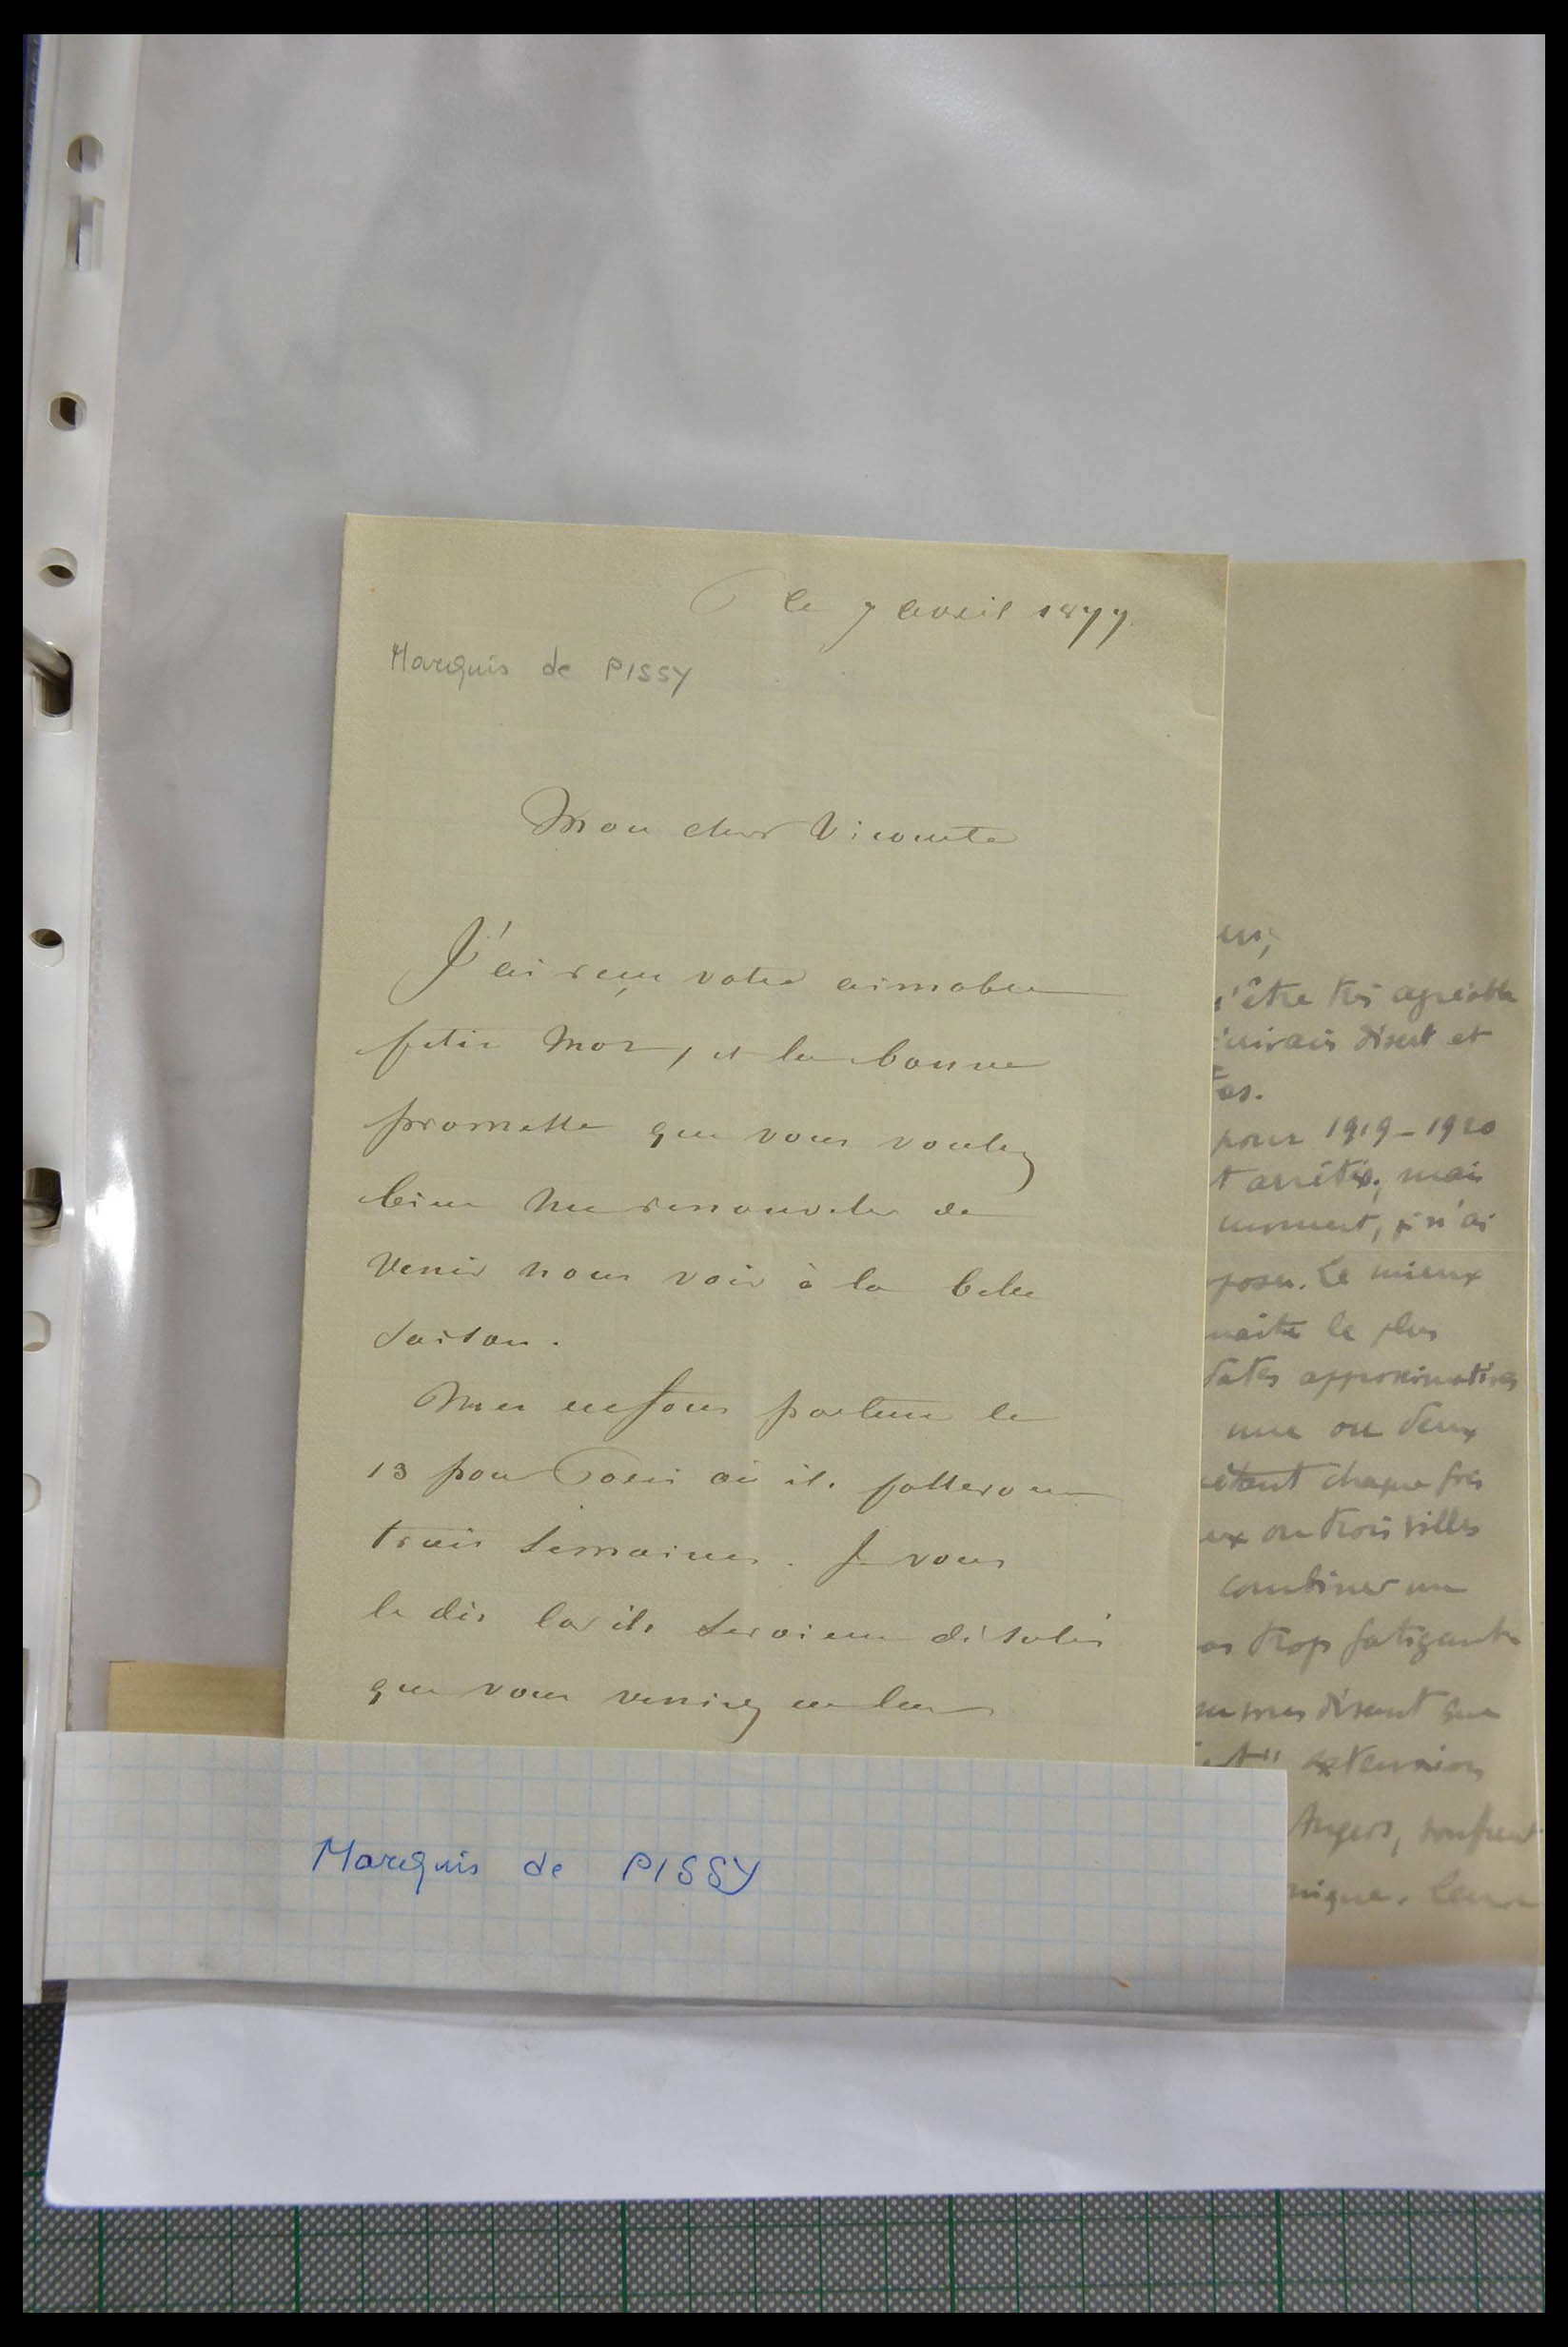 le 7 avril 1877
Marquis de PISSY
Mon cher Vicomte
J'ai reçu votre aimable
petit mot, et la bonne
promesse que vous voulez
bien me renouveler de
venir nous voir à la belle
saison.
Mes enfans partent le
13 pour Paris où ils passeront
trois semaines. Je vous
le dis car ils seroient désolés
que vous veniez en leur
Marquis de PISSY
'être très agréable
disent et
pour 1919-1920
arrêtés, mais
moment, je n'ai
Le mieux
le plus
dates approximatives
une ou deux
chaque fois
ou trois villes
combiner un
trop fatigante
disent que
extension
Angers,